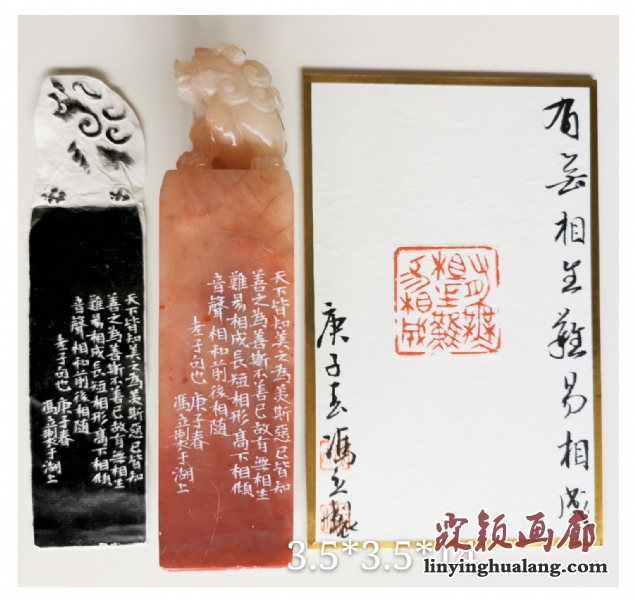 天下皆知美之為美斯惡已皆知
善之為善斯不善已故有無相生
難易相成長短相形高下相傾
音聲相和前後相隨
老子句也庚子春
馮立製于湖上
天下皆知美之為美斯惡已皆知
善之為善斯不善已故有無相生
難易相成長短相形高下相傾
音聲相和前後相隨
老子句也庚子春
馮立製于湖上
有无相生難易相成
有無相生難易相成
庚子春馮立製
3.5*3.5*14
霖颖画廊
linyinghualang.com